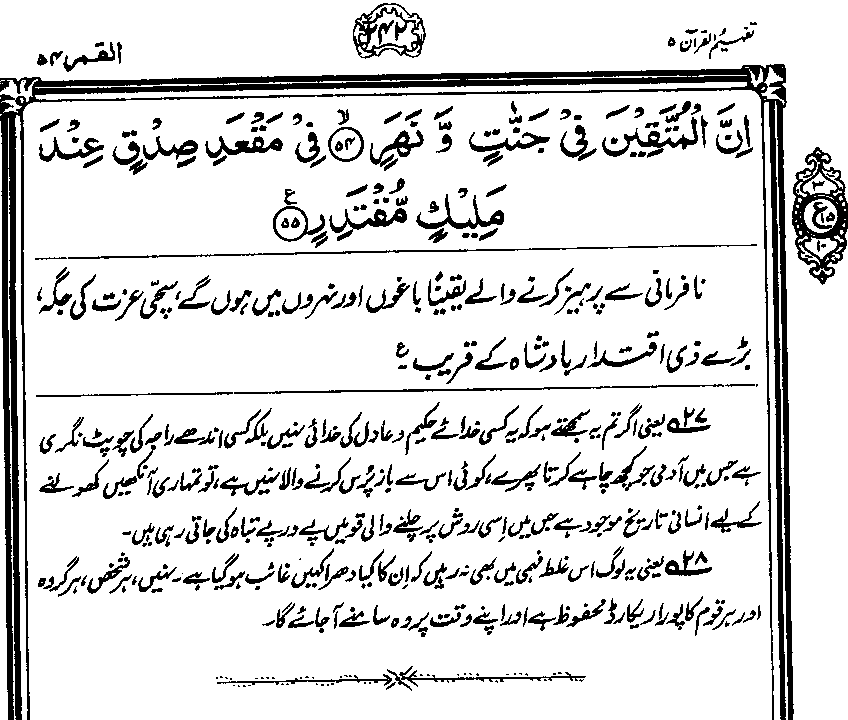 تفہیم القرآن ۵
۲۴۲
القمر ۵۴
اِنَّ الْمُتَّقِیْنَ فِیْ جَنّٰتٍ وَّ نَهَرٍ ﴿۵۴﴾ۙ فِیْ مَقْعَدِ صِدْقٍ عِنْدَ
مَلِیْكٍ مُّقْتَدِرٍ ﴿۵۵﴾ع
۳
ع
۱۵
۱۰
نافرمانی سے پرہیز کرنے والے یقیناً باغوں اور نہروں میں ہوں گے، سچی عزت کی جگہ،
بڑے ذی اقتدار بادشاہ کے قریب ع
۲۷ یعنی اگر تم یہ سمجھتے ہو کہ یہ کسی خدائے حکیم و عادل کی خدائی نہیں بلکہ کسی اندھے راجہ کی چوپٹ نگری
ہے جس میں آدمی جو کچھ چاہے کرتا پھرے، کوئی اس سے باز پُرس کرنے والا نہیں ہے، تو تمہاری آنکھیں کھولنے
کے لیے انسانی تاریخ موجود ہے جس میں اِسی روش پر چلنے والی قومیں پے در پے تباہ کی جاتی رہی ہیں۔
۲۸ یعنی یہ لوگ اس غلط فہمی میں بھی نہ رہیں کہ اِن کا کیا دھرا کہیں غائب ہو گیا ہے۔ نہیں، ہر شخص، ہر گروہ
اور ہر قوم کا پورا ریکارڈ محفوظ ہے اور اپنے وقت پر وہ سامنے آ جائے گا۔